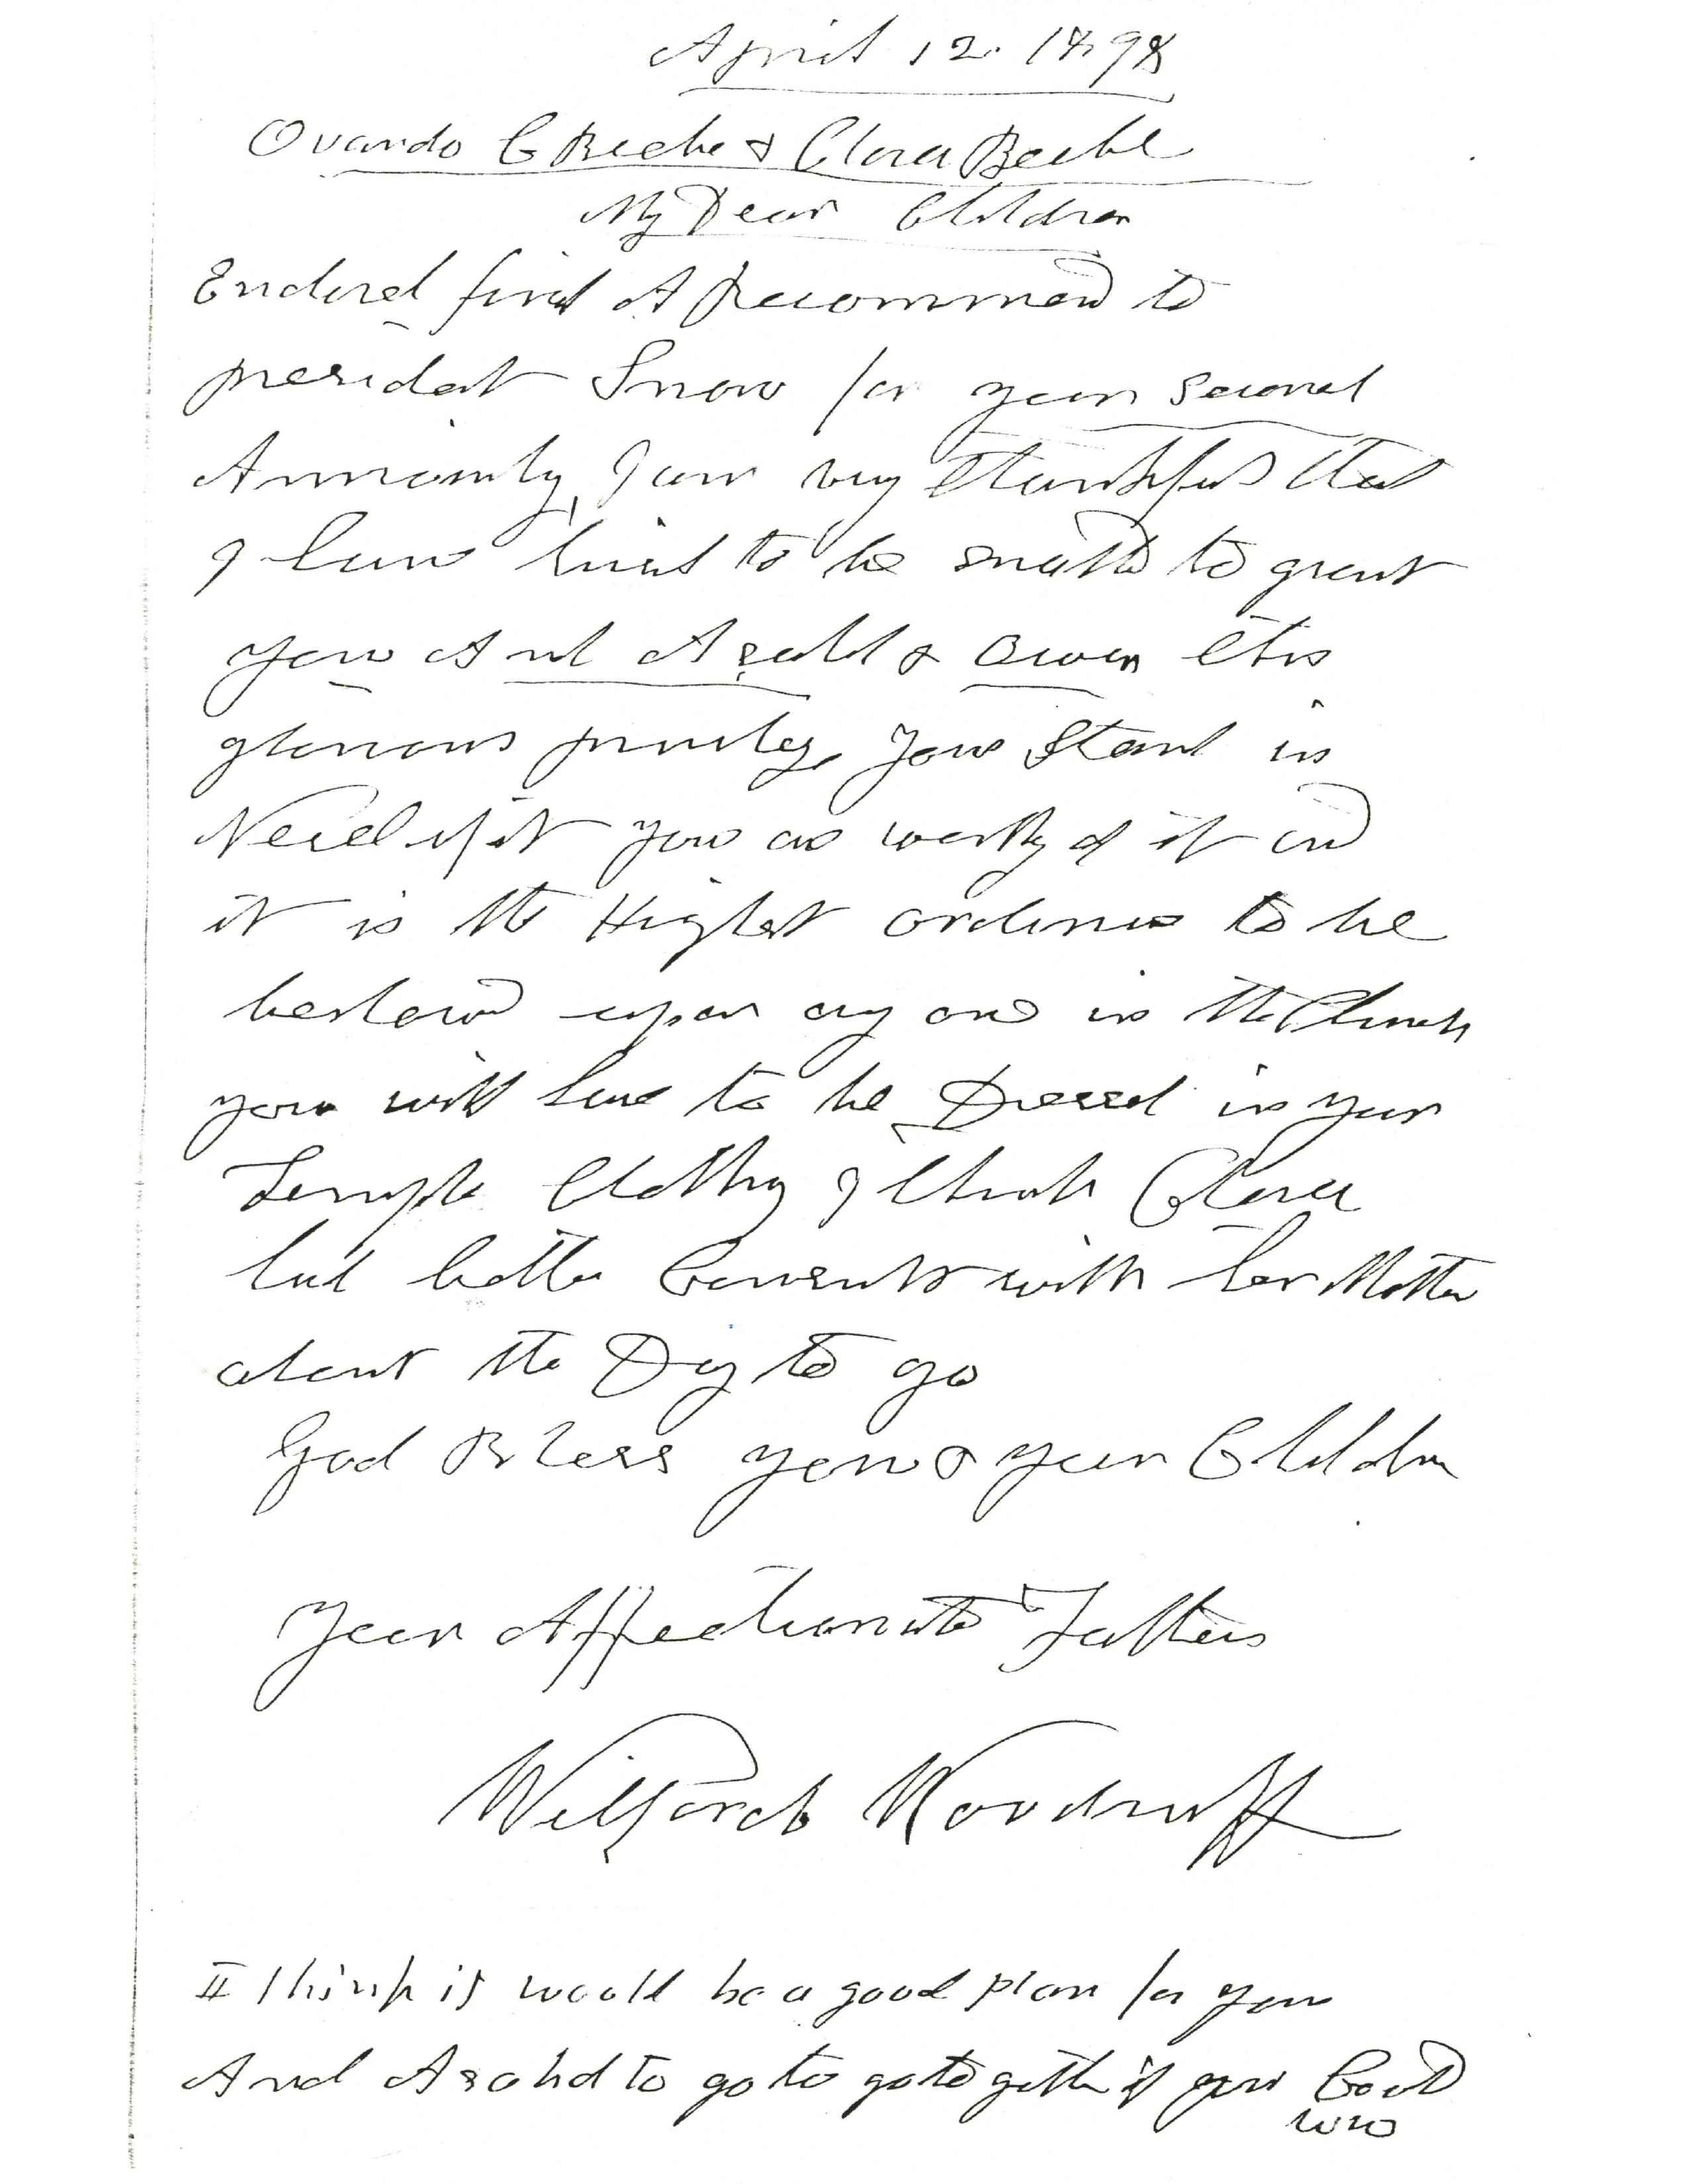 April 12. 1898
Ovando C Beebe & Clara Beebe
My Dear Children
Enclosed find A Recommend to
president Snow for your second
Annointing I am very thankful that
I have lived to be enabld to grant
you And Asahel & Owen this
glorious privilege you Stand in
Need of it you are worthy of it and
it is the Highest ordinance to be
bestowed upon any one in the Church
you will have to be Dressed in your
Temple Clothing I think Clara
had better Consult with her Mother
about the Day to go
God Bless you & your Children
Your Affectionate Father
Wilford Woodruff
II think it would be a good plan for you
And Asahel to go to go together if you Could
WW